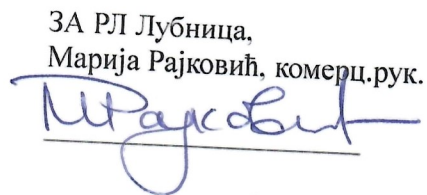 ЗА РЛ Лубница,
Марија Рајковић, комерц.рук.
МРајковић